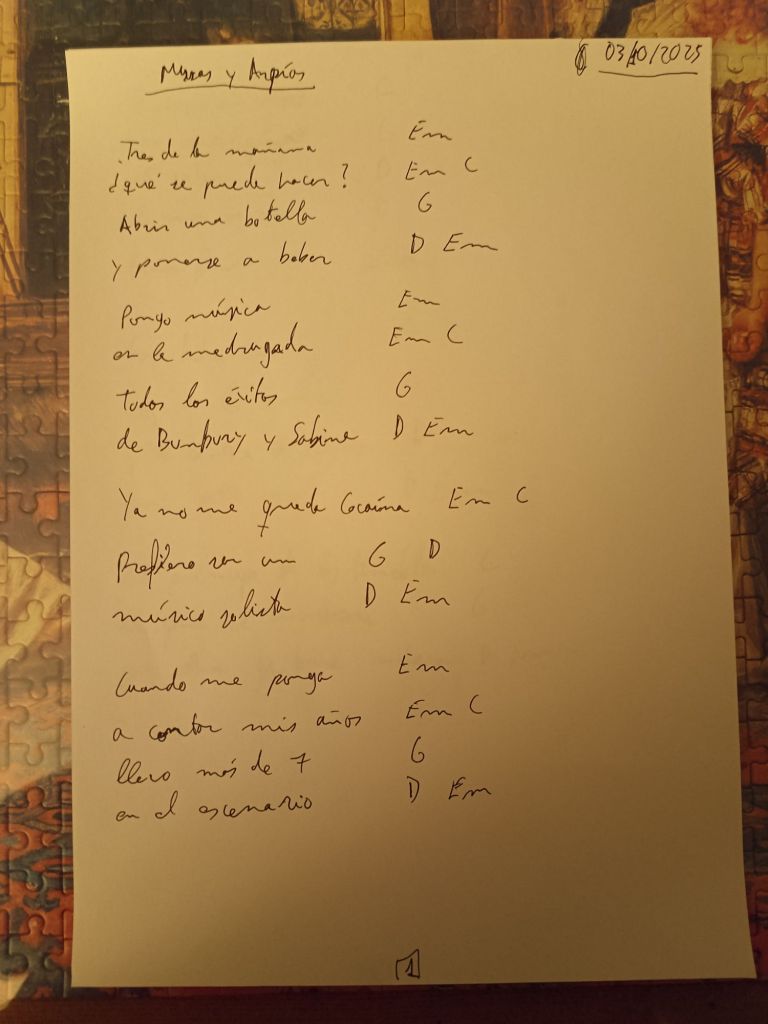 Musas y Arpías
03/10/2025
Tres de la mañana Em
¿qué se puede hacer? Em C
Abrir una botella G
y ponerse a beber D Em
Pongo música Em
en la madrugada Em C
Todos los éxitos G
de Bunbury y Sabina D Em
Ya no me queda Cocaína Em C
Prefiero ser un G D
músico solista D Em
Cuando me ponga Em
a contar mis años Em C
llevo más de 7 G
en el escenario D Em
1